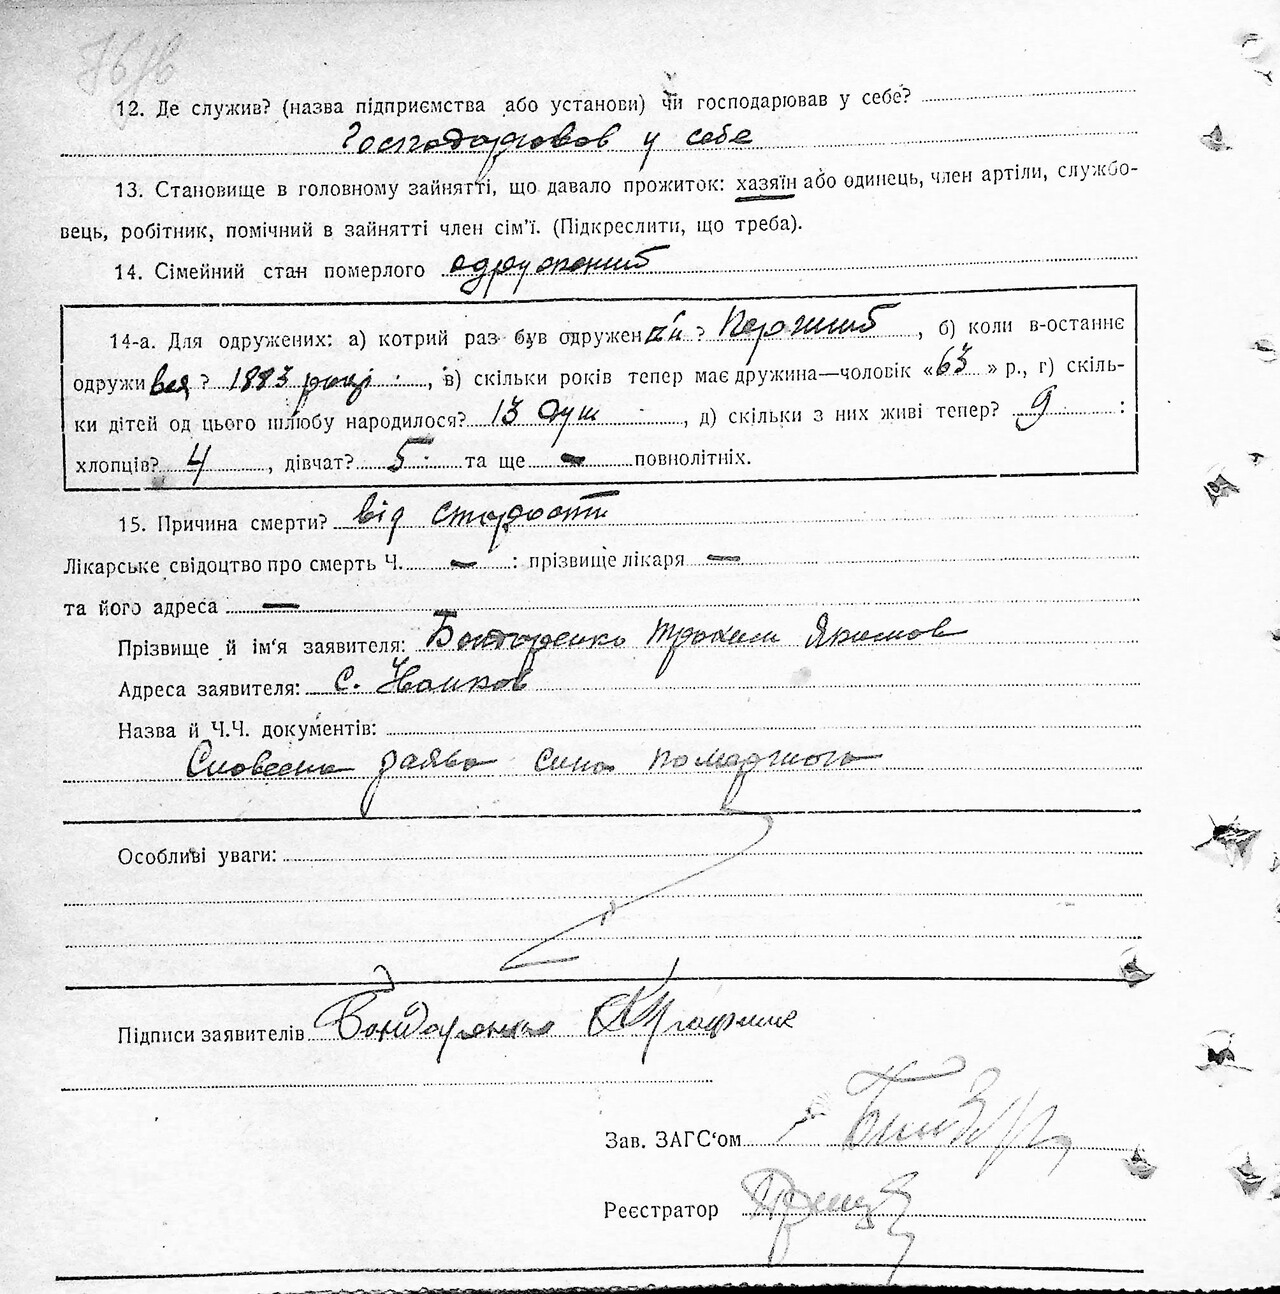 12. Де служив? (назва підприємства або установи) чи господарював у себе?
Господарював у себе
13. Становище в головному зайнятті, що давало прожиток: хазяїн або одинець, член артіли, службо-
вець, робітник, помічний в зайнятті член сім'ї. (Підкреслити, що треба).
14. Сімейний стан померлого одружений
14-а. Для одружених: а) котрий раз був одружений? Перший, б) коли в-останнє
одружився? 1883 році, в) скільки років тепер має дружина—чоловік «63» р., г) скіль-
ки дітей од цього шлюбу народилося? 13 душ, д) скільки з них живі тепер? 9 :
хлопців? 4, дівчат? 5 та ще — повнолітніх.
15. Причина смерти? від старости
Лікарське свідоцтво про смерть Ч. — : прізвище лікаря —
та його адреса —
Прізвище й ім'я заявителя: Бондаренко Трохим Якимов
Адреса заявителя: с.
Назва й Ч.Ч. документів:
Словесна заява сина
Особливі уваги:
Підписи заявителів Бондаренко
Зав. ЗАГС'ом
Реєстратор